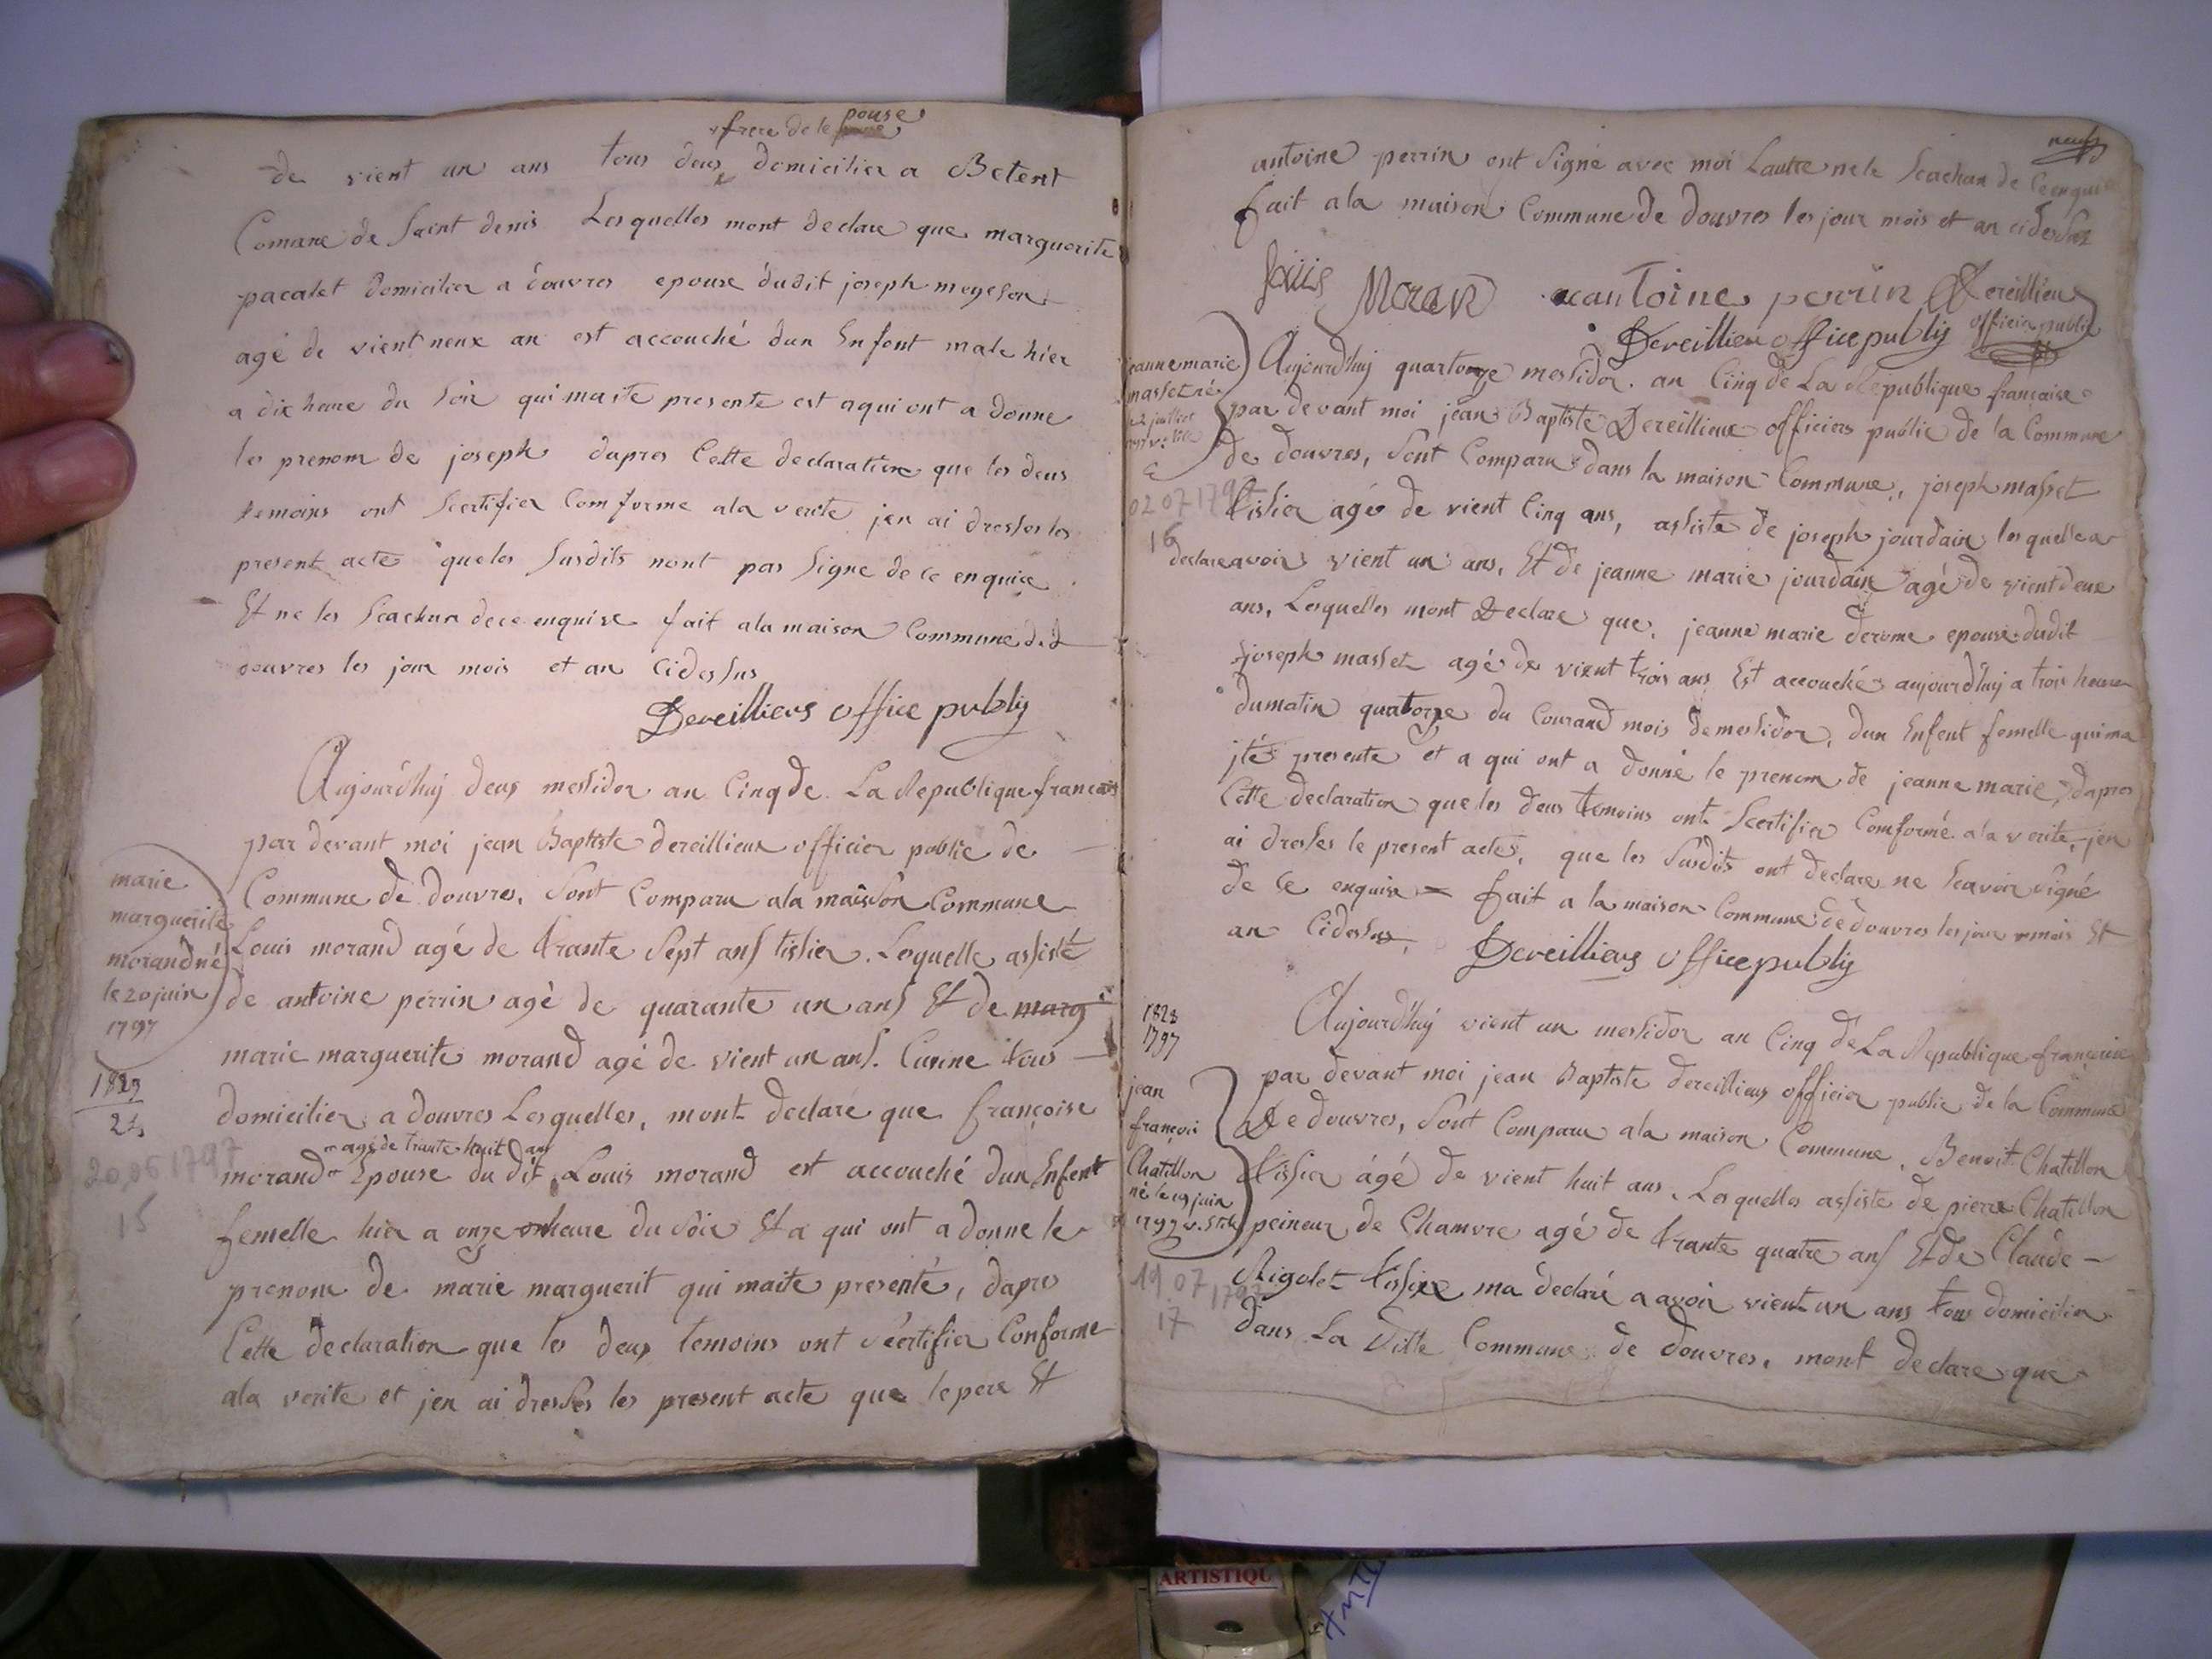 frere de le pouse
de vient un ans tous deus domicilier a Betent
Comune de Saint denis Lesquelles mont declare que marguerite
pacalet Domicilier a douvres epouse dudit joseph moyeson
agé de vient neux an est accouché dun Enfent male hier
a dix heure du soir qui maste presente est aqui ont a donne
les prenom de joseph dapres Cette declaration que les deus
temoins ont Scertifier Comforme ala verite jen ai dresses les
present acte que les Susdits nont pas Signe de ce enquice
Et ne les Scachan de ce enquise fait ala maison Commune dud
douvres les jour mois et an Cidessus
Dereilliers office publij
Aujourdhuj deus messidor an Cinq de La Republique francais
par devant moi jean Baptiste dereillieux officier public de
Commune de douvres, Sont Comparu ala maison Commune
Louis morand agé de trante Sept ans tissier. Lesquelle assisté
de antoine perrin agé de quarante un ans Et de marg
marie marguerite morand agé de vient un ans. Cusine tous
domicilier a douvres Lesquelles, mont declaré que françoise
agé de trante huit ans
morand Epouse du dit Louis morand est accouché dun Enfent
femelle hier a onze heure du Soir Et a qui ont a donne le
prenom de marie marguerit qui maite presenté, dapres
Cette declaration que les deux temoins ont Scertifier Conforme
ala verite et jen ai dresses les present acte que le pere Et
marie
marguerite
morand né
le 20 juin
1797
1823
24
20,06 1797
15
neuf
antoine perrin ont Signé avec moi Lautre ne le Scachan de Ce enquis
fait ala maison Commune de douvres les jour mois et an cidessus
Louis Moran antoine perrin Dereillieu
officier public
Dereillieu office publij
Aujourdhuj quartorze messidor. an Cinq de La Republique française
par devant moi jean Baptiste Dereillieux officiers public de la Commune
de douvres, Sont Comparu dans la maison Commune, joseph masset
tissier agé de vient Cinq ans, assiste de joseph jourdain lesquelle a
declare avoir vient un ans, Et de jeanne marie jourdain agé de vient deux
ans, Lesquelles mont Declare que, jeanne marie derome epouse dudit
joseph masset agé de vient trois ans Est accouché aujourdhuj a trois heure
dumatin quatorze du Courand mois demessidor, dun Enfent femelle qui ma
jté presente et a qui ont a donné le prenom de jeanne marie, dapres
Cette declaration que les deus temoins ont Scertifier Comformé ala verite, jen
ai dresses le present acte, que les Susdits ont declare ne Scavoir Signé
de Ce enquise fait a la maison Commune de douvres les jour mois Et
an Cidessus, Dereilliers office publij
Aujourdhuj vient un messidor an Cinq de La Republique française
par devant moi jean Baptiste dereillieus officier public de la Commune
De douvres, Sont Comparu ala maison Commune, Benoit Chatillon
tissier agé de vient huit ans, Lesquelles assiste de pierre Chatillon
peineur de Chamvre agé de trante quatre ans Et de Claude
Rigolet tissier ma declaré a avoir vient un ans tous domicilier
dans La Ditte Commune de douvres, mont declare que
jeanne marie
masset né
le 2 juillet
02 07 1797
16
1823
1797
jean
françois
Chatillon
né le 19 juin
1797 v. Stile
19 07 1797
17
ARTISTIQU